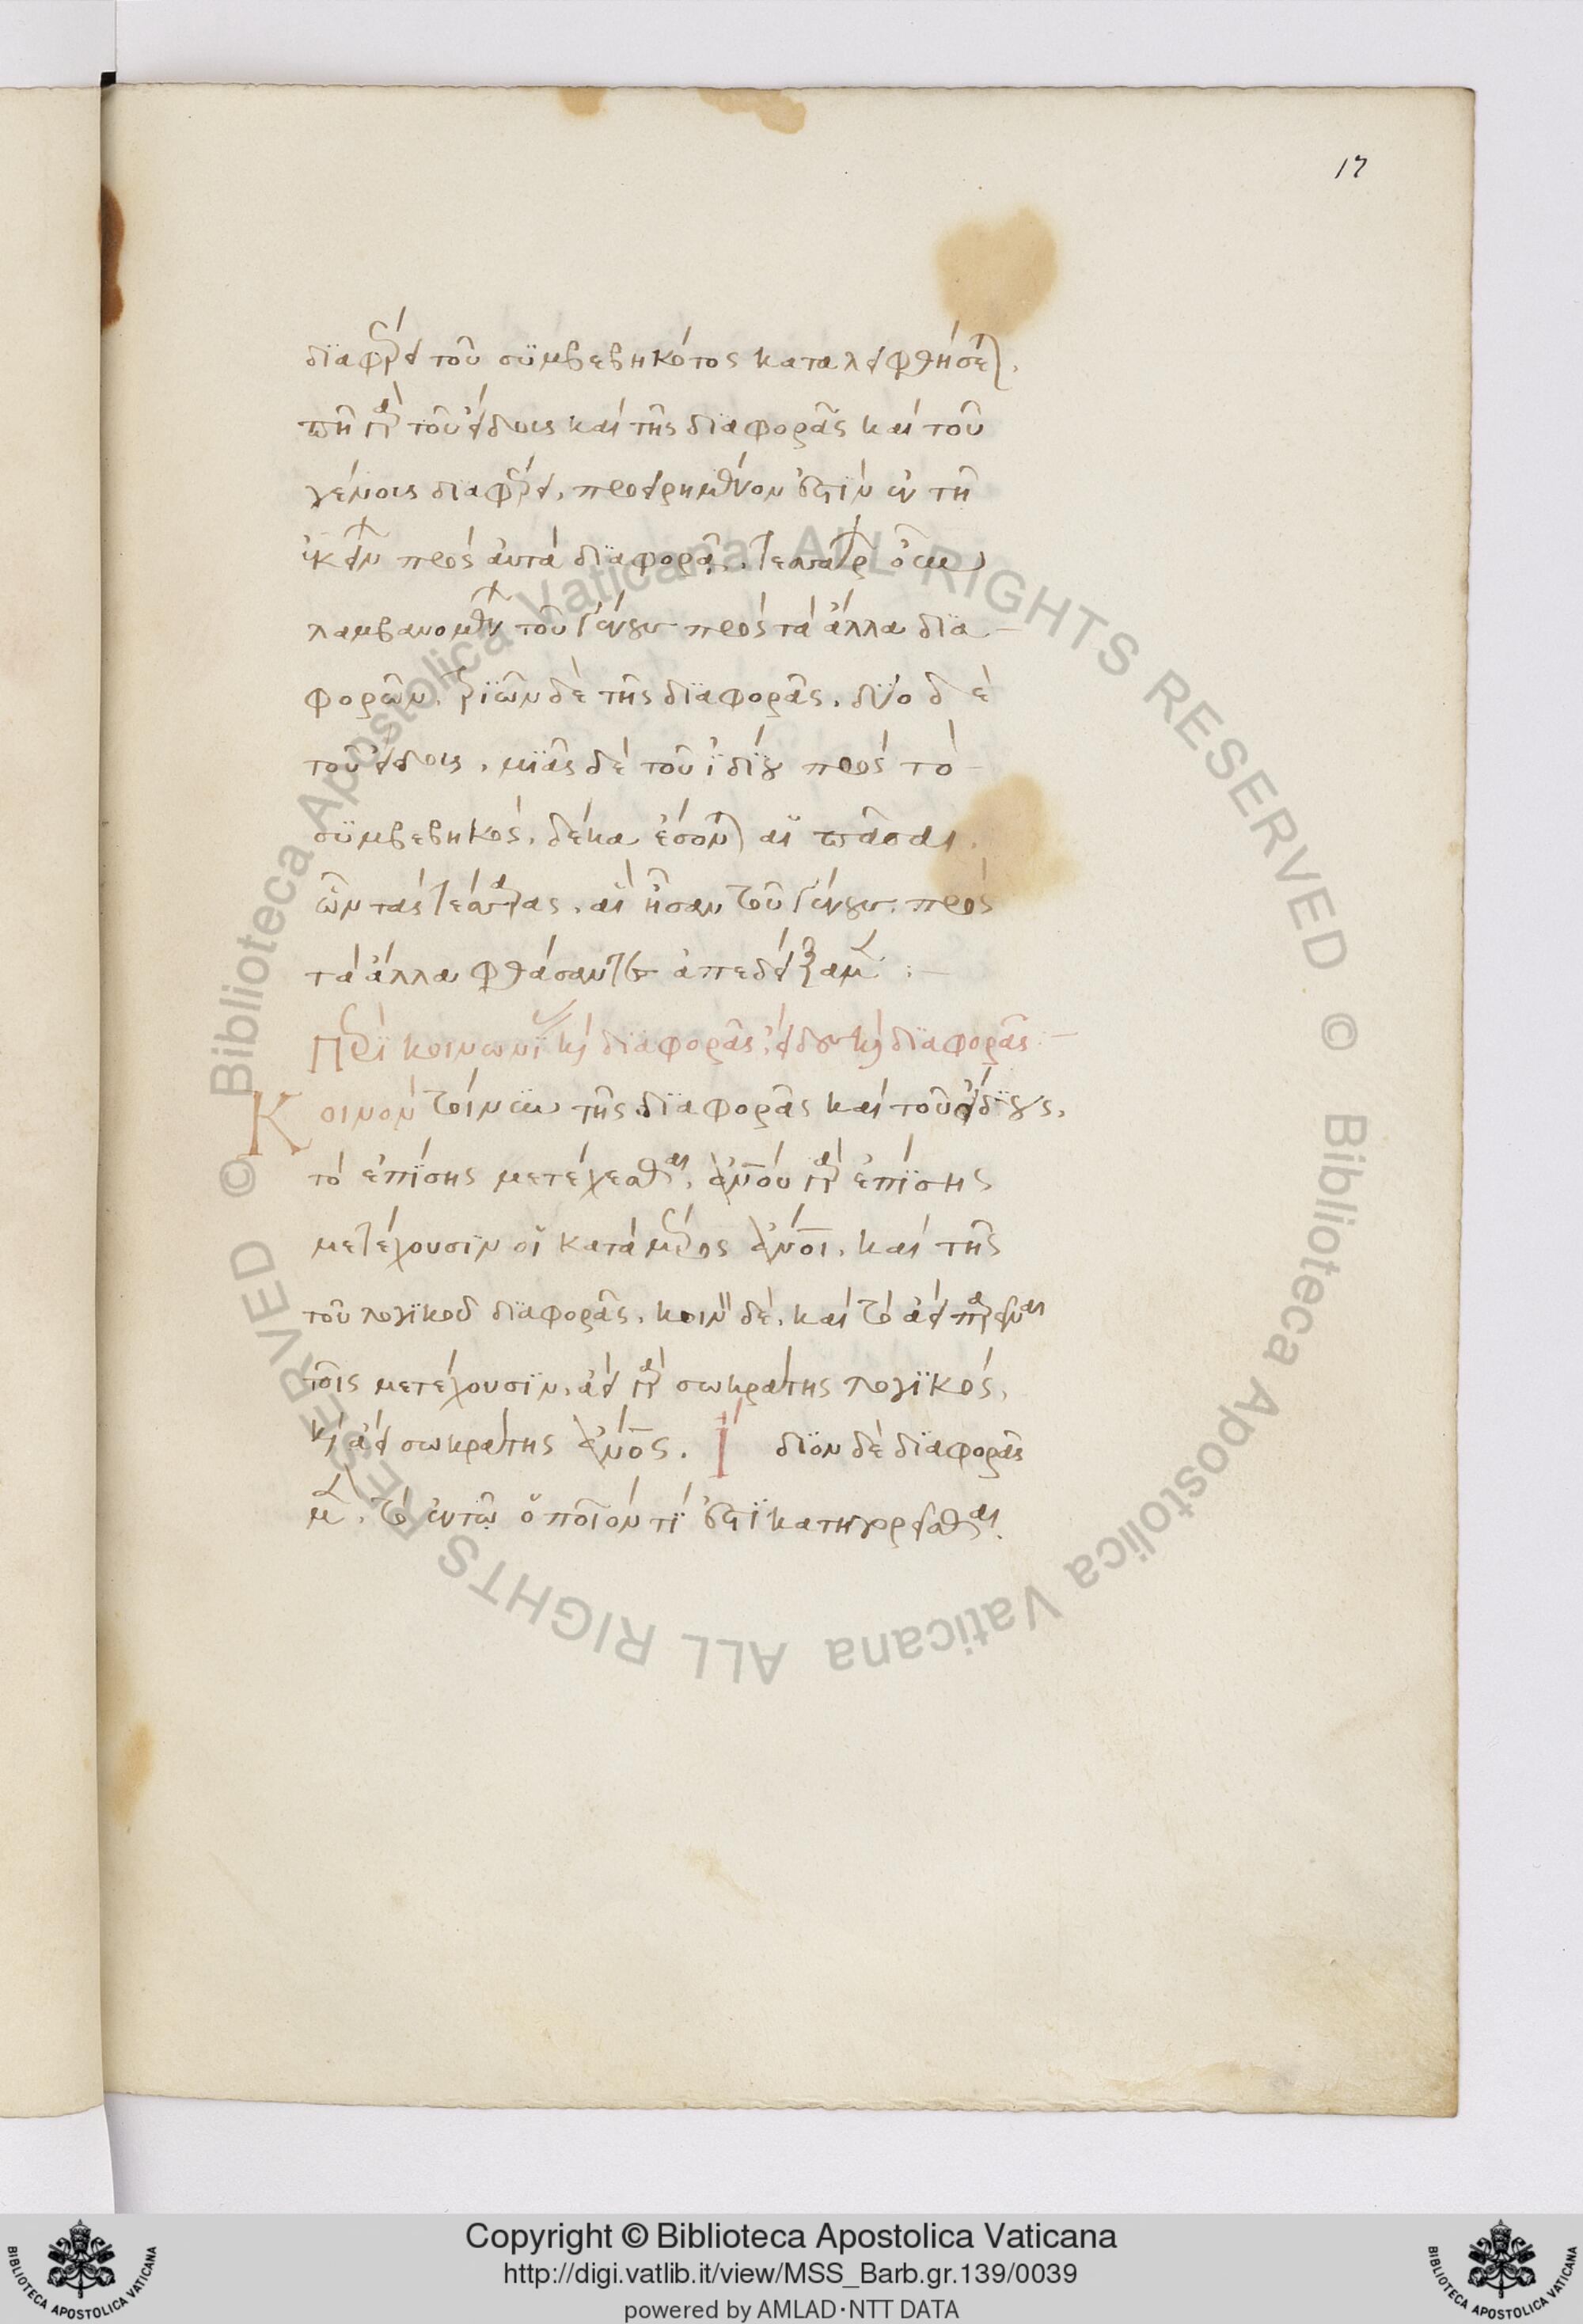 17
διαφέρει τοῦ συμβεβηκότος καταλειφθήσεται.
πῆ γὰρ τοῦ εἴδους καὶ τῆς διαφορᾶς καὶ τοῦ
γένους διαφέρει, προειρημένον ἐστὶν ἐν τῆ
ἐκείνων πρὸς αὐτὰ διαφορᾷ. τεσσάρων οὖν
λαμβανομένων τοῦ γένους πρὸς τὰ ἄλλα δια
φορῶν. τριῶν δὲ τῆς διαφορᾶς. δύο δὲ
τοῦ εἴδους. μιᾶς δὲ τοῦ ἰδίου πρὸς τὸ
συμβεβηκός. δέκα ἔσονται αἱ πᾶσαι.
ὧν τὰς τέσσαρας, αἳ ἦσαν τοῦ γένους πρὸς
τὰ ἄλλα φθάσαντες ἀπεδείξαμεν :—
Περὶ κοινωνίας καὶ διαφορᾶς εἴδους καὶ διαφορᾶς :—
Κοινὸν τοίνυν τῆς διαφορᾶς καὶ τοῦ εἴδους,
τὸ ἐπίσης μετέχεσθαι. ἀνου γὰρ ἐπίσης
μετέχουσιν οἱ κατὰ μέρος ἀνοι. καὶ τῆς
τοῦ λογικοῦ διαφορᾶς. κοινὸν δὲ. καὶ τὸ ἀεὶ παρεῖναι
τοῖς μετέχουσιν. ἀεὶ γὰρ σωκράτης λογικός.
καὶ ἀεὶ σωκράτης ἀνος. Ἴδιον δὲ διαφορᾶς
μὲν. τὸ ἐν τῶ ὁποῖόν τί ἐστι κατηγορεῖσθαι.
Copyright © Biblioteca Apostolica Vaticana
http://digi.vatlib.it/view/MSS_Barb.gr.139/0039
powered by AMLAD·NTT DATA
BIBLIOTECA APOSTOLICA VATICANA
BIBLIOTECA APOSTOLICA VATICANA
© Biblioteca Apostolica Vaticana ALL RIGHTS RESERVED
© Biblioteca Apostolica Vaticana ALL RIGHTS RESERVED